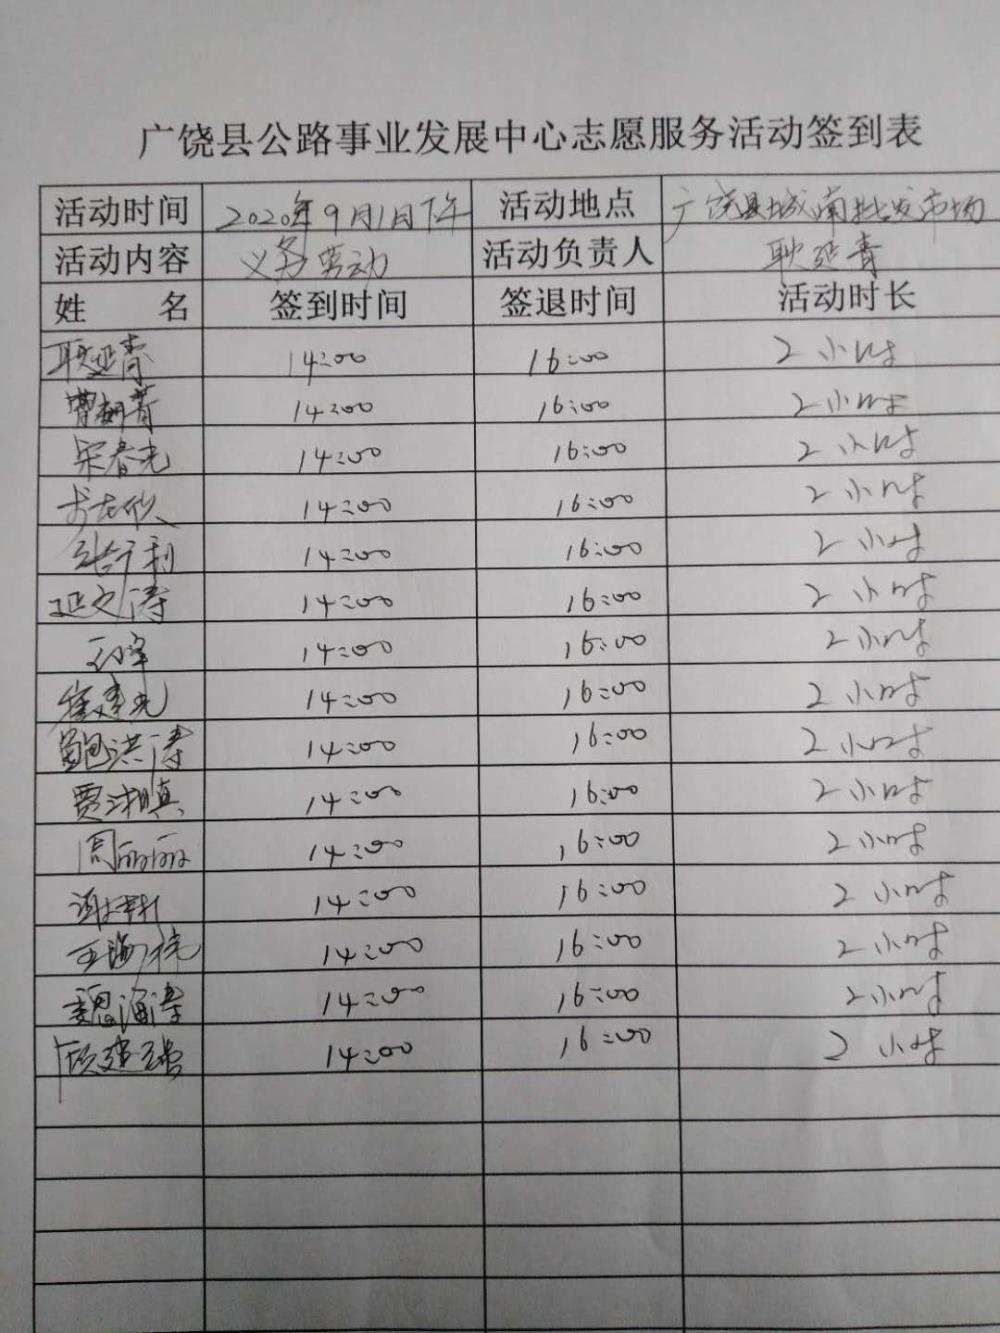 广饶县公路事业发展中心志愿服务活动签到表
活动时间 2020年9月1日下午 活动地点 广饶县城南批发市场
活动内容 义务劳动 活动负责人 耿延青
姓 名 签到时间 签退时间 活动时长
耿延青 14:00 16:00 2小时
曹娟菁 14:00 16:00 2小时
宋春光 14:00 16:00 2小时
14:00 16:00 2小时
14:00 16:00 2小时
延文涛 14:00 16:00 2小时
14:00 16:00 2小时
崔建光 14:00 16:00 2小时
鲍洪涛 14:00 16:00 2小时
贾湘真 14:00 16:00 2小时
周丽丽 14:00 16:00 2小时
14:00 16:00 2小时
王海伟 14:00 16:00 2小时
魏海涛 14:00 16:00 2小时
14:00 16:00 2小时